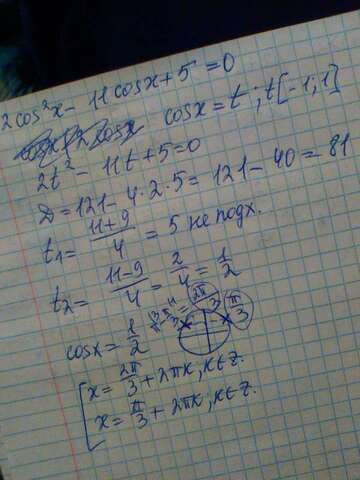 2cos²x - 11cosx + 5 = 0
cosx = t ; t[-1; 1]
2t² - 11t + 5 = 0
D = 121 - 4 · 2 · 5 = 121 - 40 = 81
t₁ = (11+9)/4 = 5 не подх.
t₂ = (11-9)/4 = 2/4 = 1/2
cosx = 1/2
2π/3
π/3
x = 2π/3 + 2πk, k∈Z.
x = π/3 + 2πk, k∈Z.